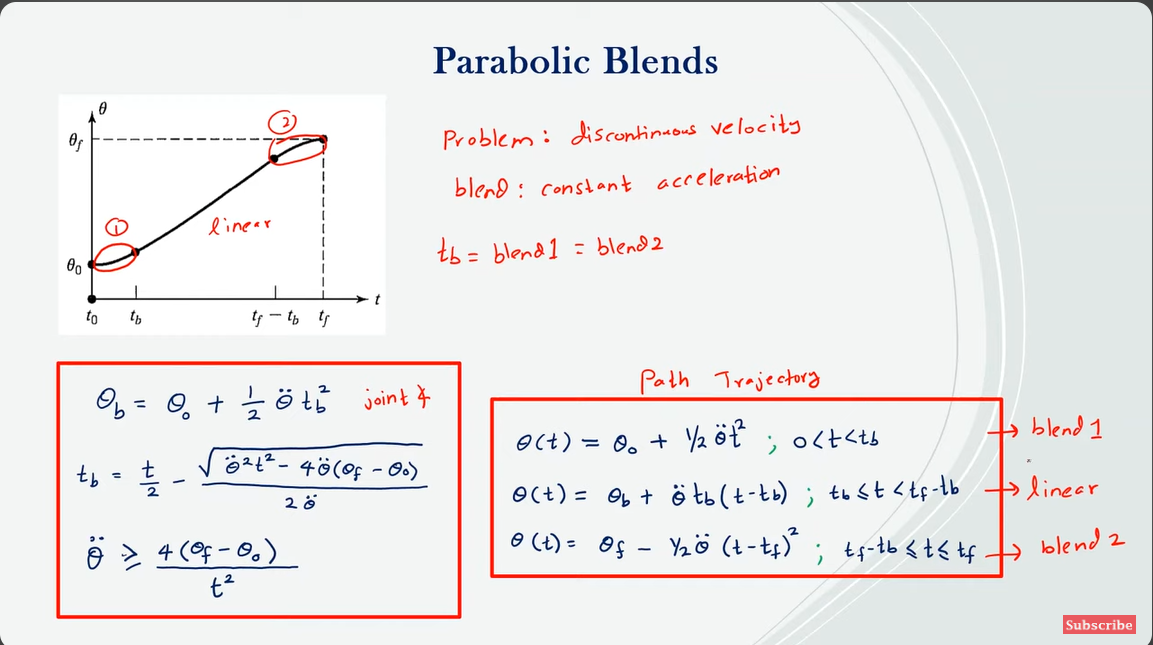 Parabolic Blends
θ
θf
②
①
linear
θ₀
t
t₀ tb tf − tb tf
Problem: discontinuous velocity
blend: constant acceleration
tb = blend1 = blend2
θb = θ₀ + 1/2 θ̈ tb² joint ∡
tb = t/2 − √(θ̈²t² − 4θ̈(θf − θ₀)) / 2θ̈
θ̈ ⩾ 4(θf − θ₀) / t²
Path Trajectory
θ(t) = θ₀ + ½ θ̈t² ; 0<t<tb → blend1
θ(t) = θb + θ̈ tb(t-tb) ; tb ⩽ t < tf-tb → linear
θ(t) = θf − ½ θ̈ (t-tf)² ; tf-tb ⩽ t ⩽ tf → blend2
Subscribe